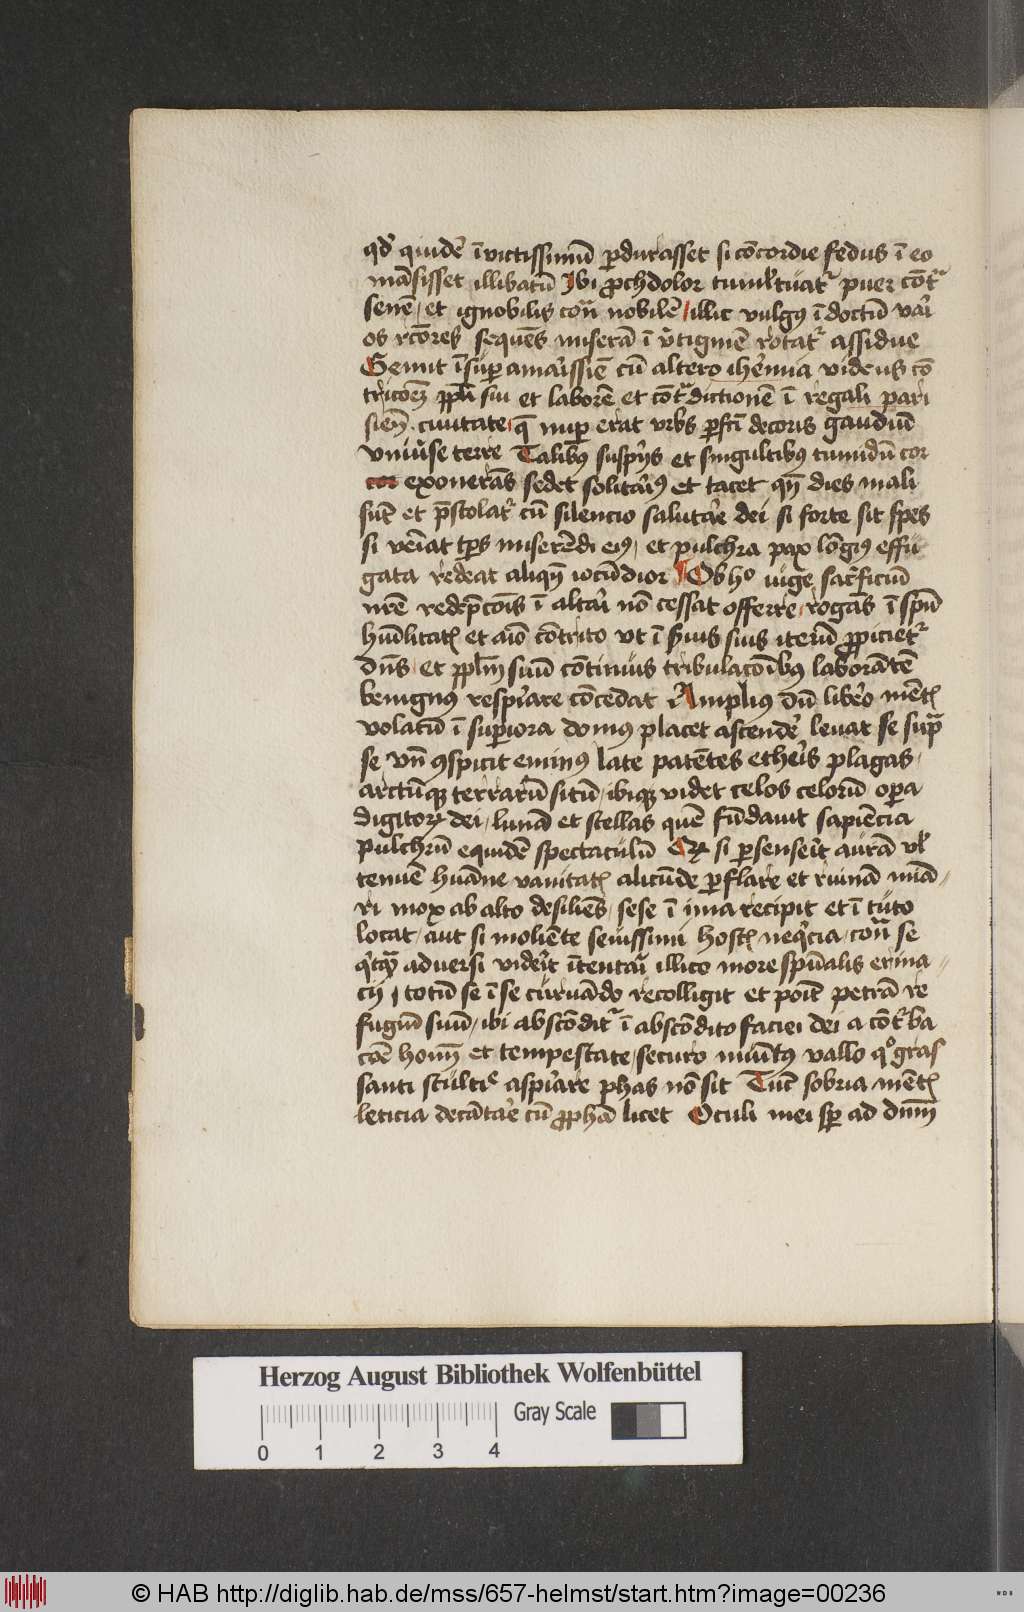 qd' quidē īvictissimū ꝑdurasset si cōcordie fedus ī eo
māsisset illibatū Ibi ꝓchdolor tumultuat᷑ puer cōt᷑
senē et ignobilis cont᷑ nobilē illic vulgꝰ īdoctū vari
os rc̄ores sequēs miserā ī v̓tiginē rotat᷑ assidue
Gemit īsuꝑ amarissīe cū altero ih̓emia videns cō
tricōeꝫ ppl̄i sui et laborē et cōt᷑dictionē ī regali pari
sien̄ ciuitate q̄ nuꝑ erat vrbs ꝑfc̄i decoris gaudiū
vniu̓se terre Talibꝰ suspijs et singultibꝰ tumidū cor
cor exonerās sedet solitariꝰ et tacet qn̄ dies mali
sūt et p̄stolat᷑ cū silencio salutare dei si forte sit spes
si veīat tp̄s miserēdi eiꝰ et pulchra pax lōgiꝰ effu
gata redeat aliqn̄ iocūdior Ob hoc iuge sac̓ficiū
nr̄e redēpcōis ī altari nō cessat offerre rogās ī spū
hūilitatꝭ et aīo cōtrito vt ī s̓uis suis iterū ꝓpiciet᷑
dn̄s et ppl̄m suū cōtinuis tribulacōibꝰ laborātē
benignꝰ respirare cōcedat Ampliꝰ dū libero mētꝭ
volatū ī suꝑiora domꝰ placet ascendē levat se sup᷑
se vn̄ ꝯspicit eminꝰ late patētes etheris plagas
arctūqꝫ terrarū sitū ibiqꝫ videt celos celorū opera
digitoꝝ dei lunā et stellas quē fūdauit sapiēcia
pulchrū equidē spectaculū Qꝫ si ꝑsenserit aurā vl̓
tenuē huāne vanitatꝭ alicūde ꝑflare et ruinā minā
ri mox ab alto desiliēs sese ī ima recipit et ī tuto
locat aut si moliēte seuissimi hostꝭ neq̓cia cont᷑ se
q̓cq̄ adversi viderit ītentari illico more spūalis erina
cij totū se ī se curuādo recolligit et poīt petrā re
fugiū suū ibi abscōdit᷑ ī abscōdito faciei dei a cōt᷑ba
cōe hoīm et tempestate securo munītꝰ vallo qͦ gras
santi aspirare phas nō sit Tūc sobria mētꝭ
leticia decātare cū ꝓphā licet Oculi mei sꝑ ad dnm̄
Herzog August Bibliothek Wolfenbüttel
Gray Scale
0 1 2 3 4
© HAB http://diglib.hab.de/mss/657-helmst/start.htm?image=00236